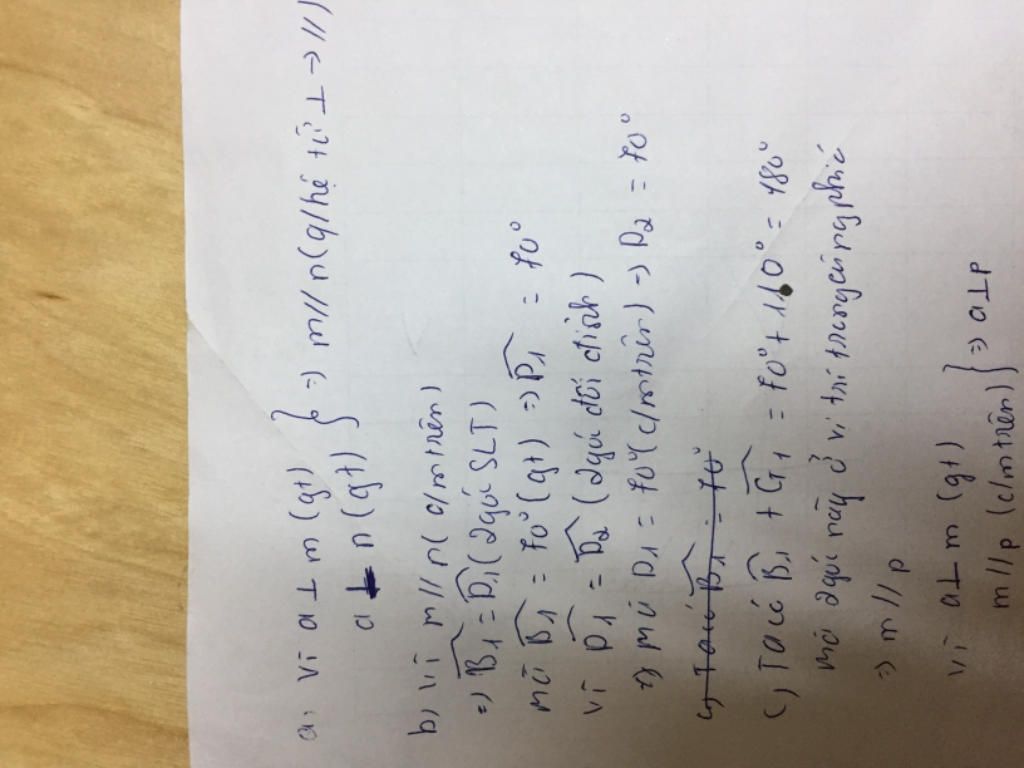 a, vì a ⊥ m (gt)
a ⊥ n (gt) } => m // n (q/hệ từ ⊥ → //)
b, vì m // n ( c/m trên )
=> B̂1 = D̂1 ( 2 góc SLT )
mà B̂1 = 70° (gt) => D̂1 = 70°
vì D̂1 = D̂2 ( 2 góc đối đỉnh )
=> mà D1 = 70° ( c/m trên ) → D2 = 70°
c, Ta có B̂1 = 70°
c, Ta có B̂1 + Ĝ1 = 70° + 110° = 180°
mà 2 góc này ở vị trí trong cùng phía
=> m // p
vì a ⊥ m (gt)
m // p ( c/m trên ) } => a ⊥ p